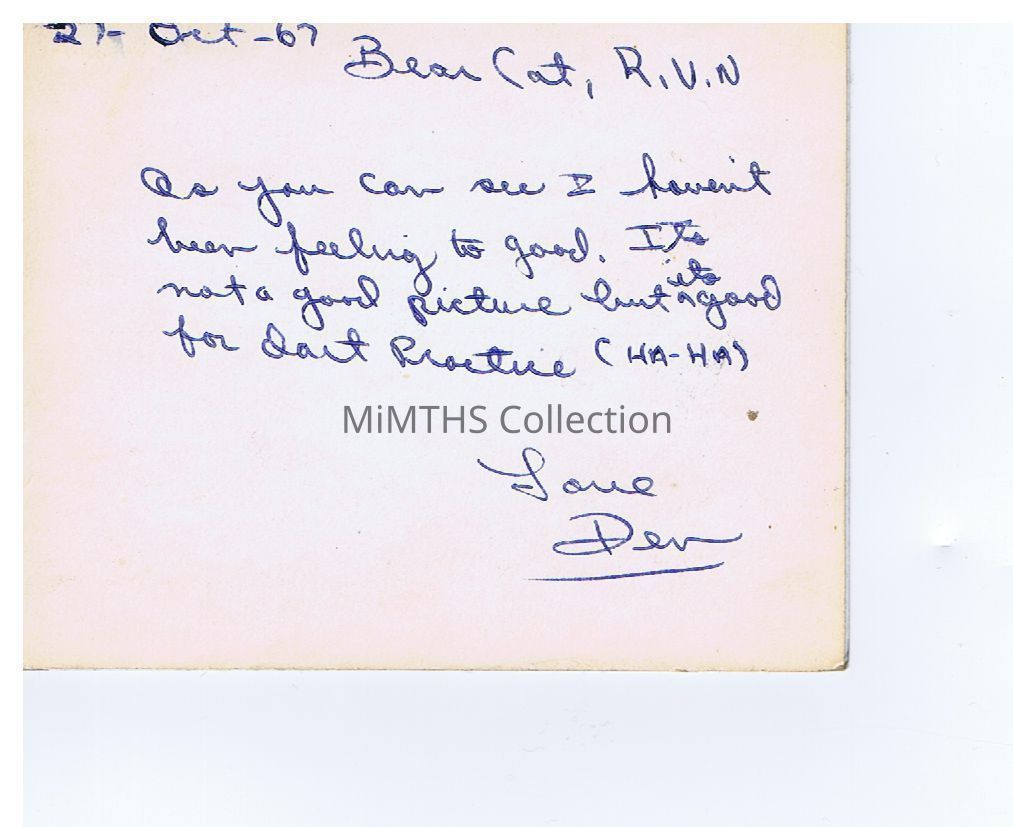 21- Oct-67
Bear Cat, R.V.N
As you can see I haven't
been feeling to good. Its
not a good picture but its good
for dart Practice (HA-HA)
MiMTHS Collection
Love
Den